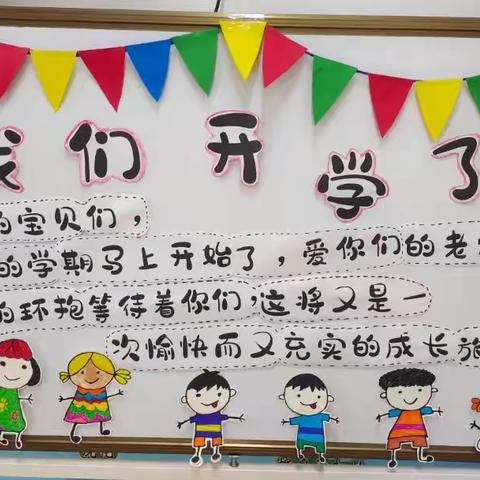 我们开学了
的宝贝们，
的学期马上开始了，爱你们的老
的环抱等待着你们，这将又是一
次愉快而又充实的成长旅